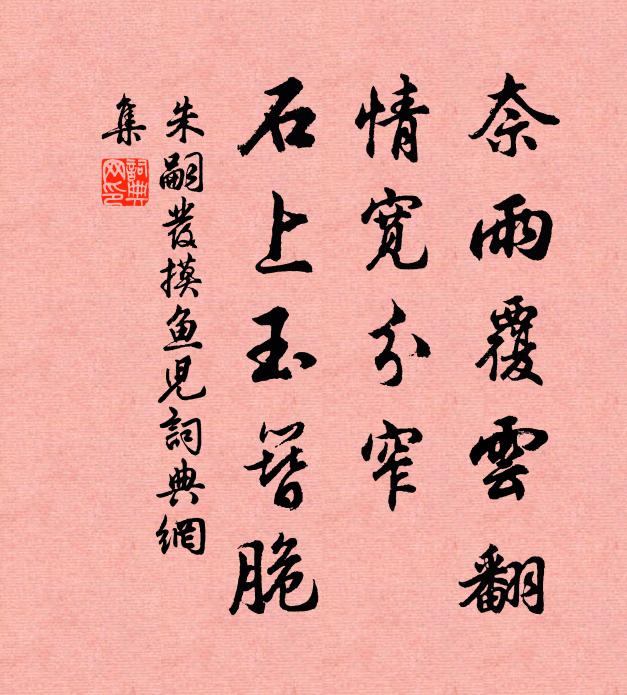 奈雨覆雲翻
情寬分窄
石上玉簪脆
朱嗣發摸魚兒詞典網
集
詞典網印